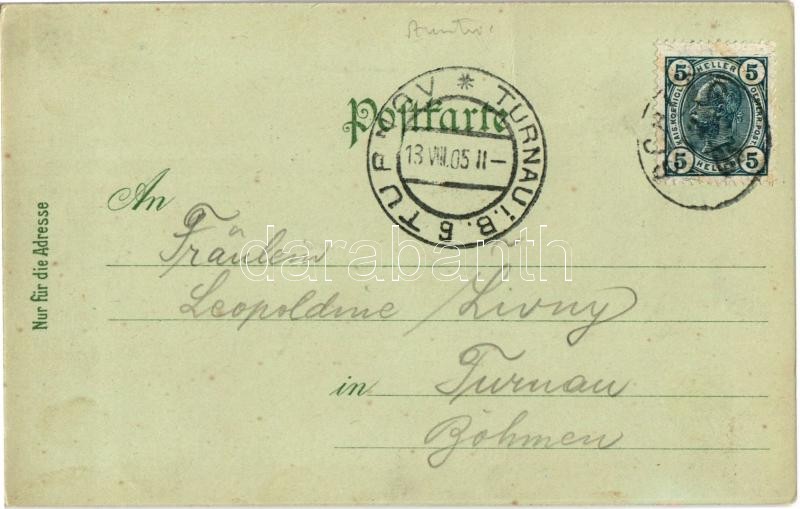 Postkarte
TURNOV * TURNAU i. B. 6
13 VIII.05 11-
5 HELLER 5
KAIS. KOENIGL. OESTERR. POST.
5 HELLER 5
An
Fräulein
Leopoldine Livny
in Turnau
Böhmen
Nur für die Adresse
darabanth